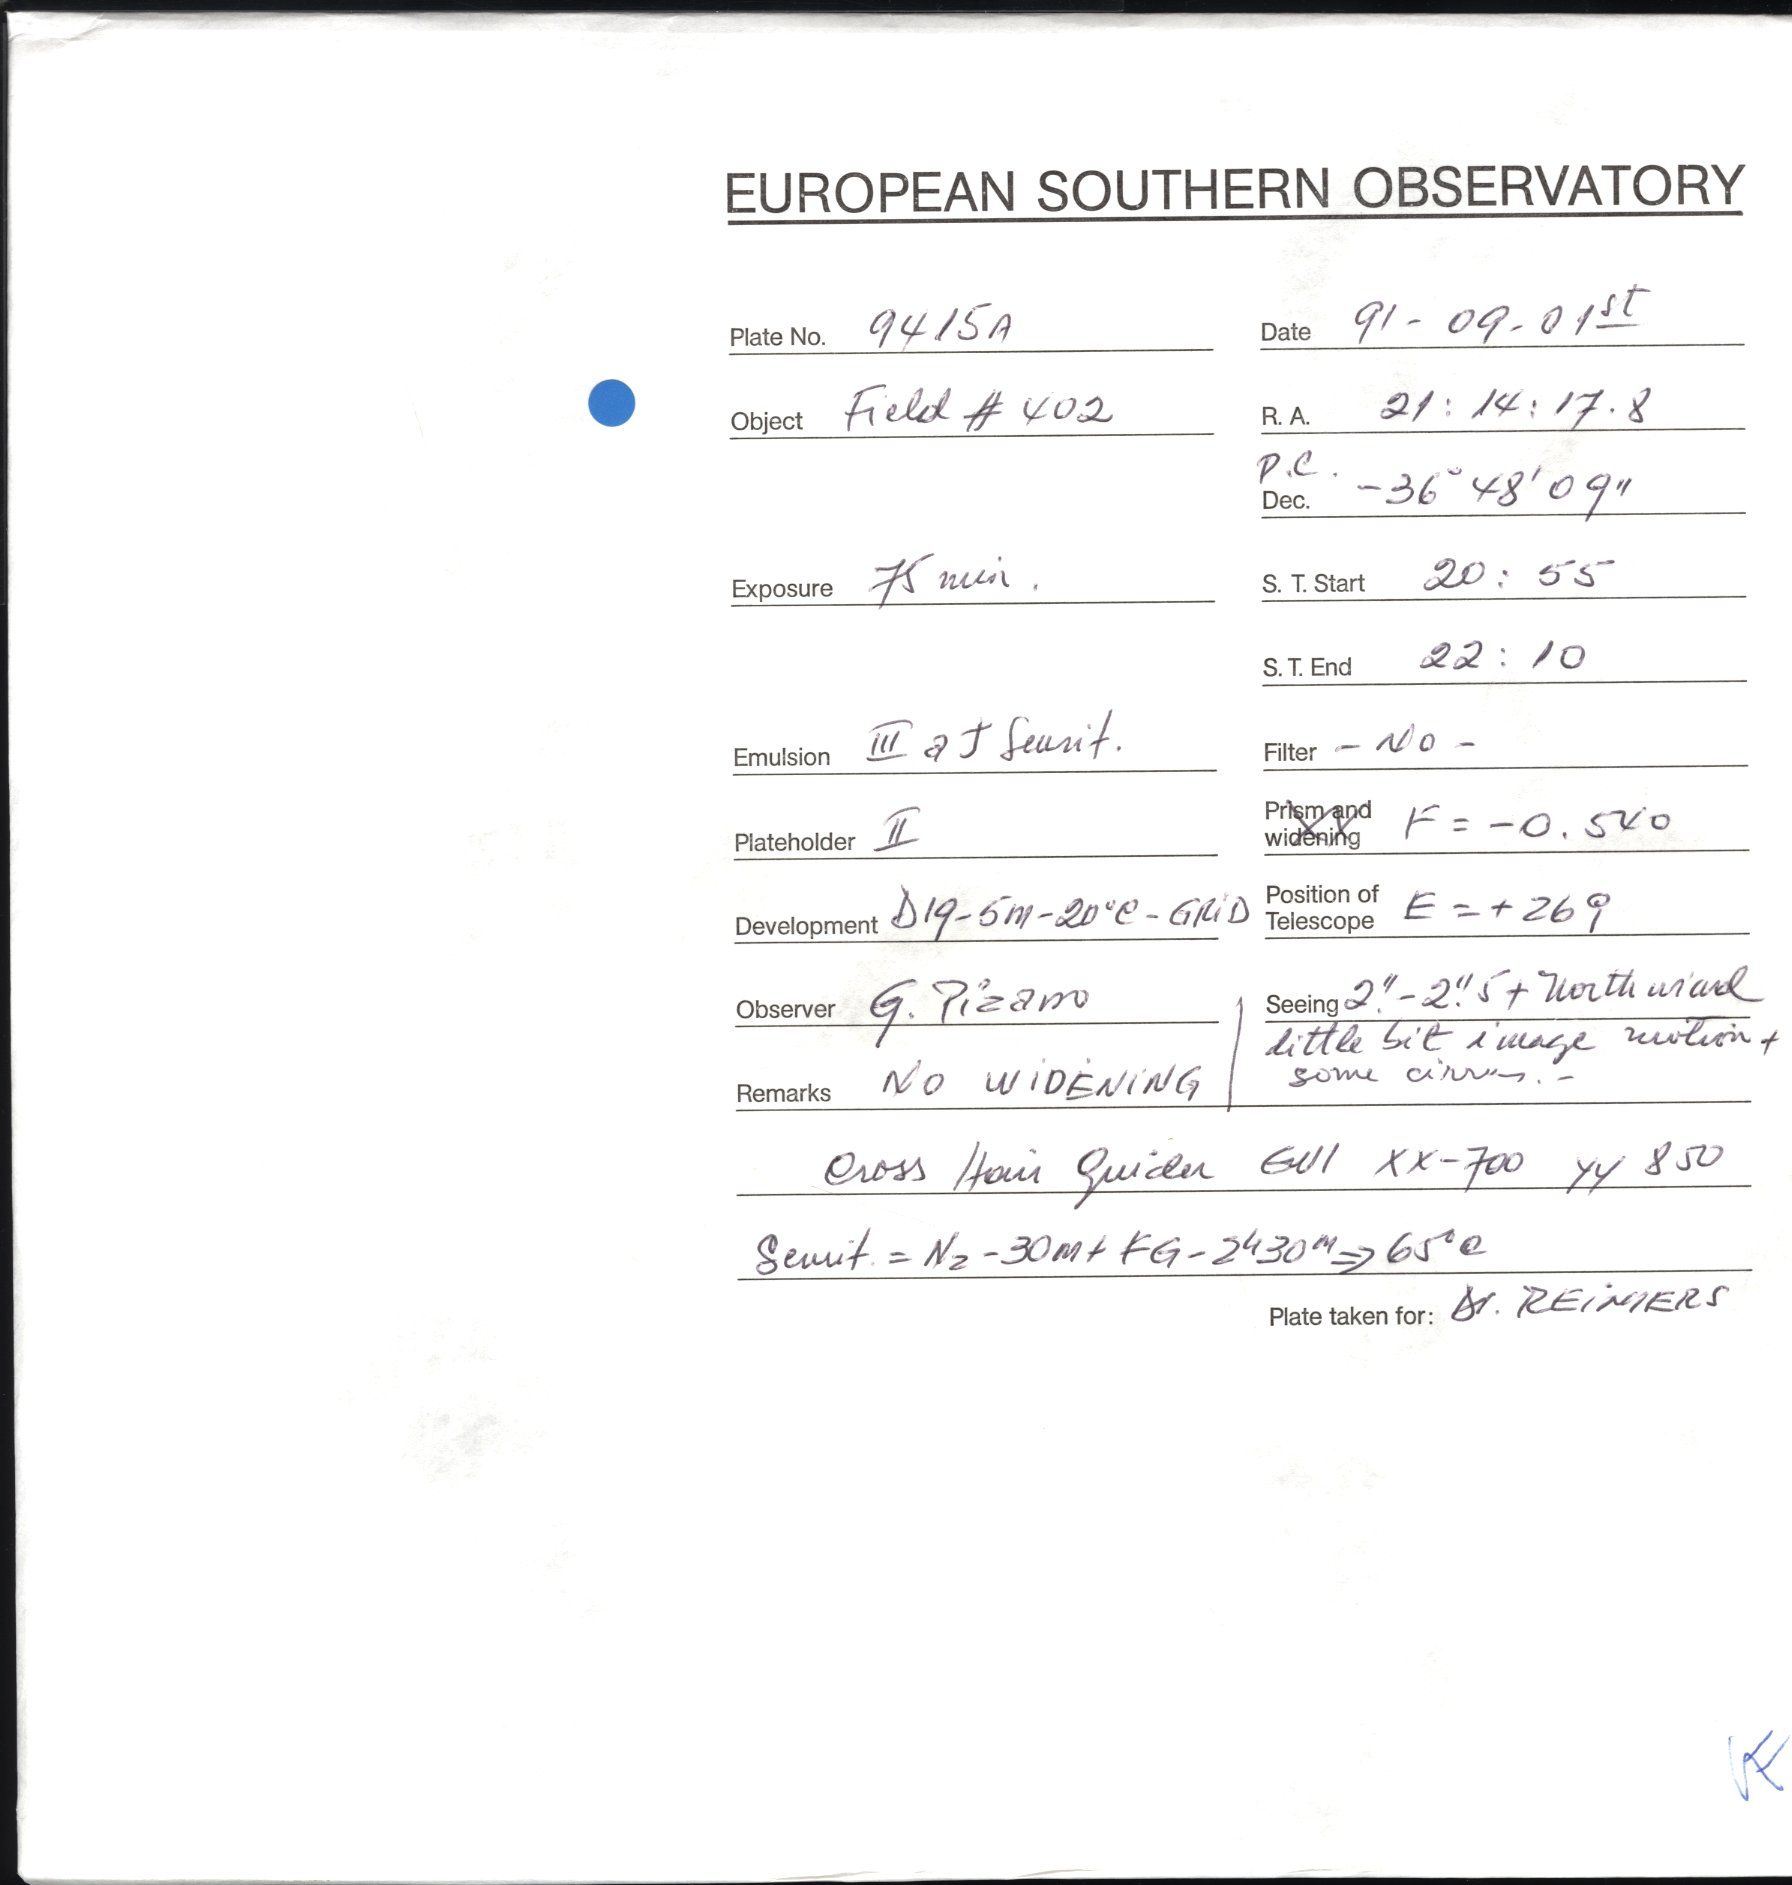 EUROPEAN SOUTHERN OBSERVATORY
Plate No. 9415A Date 91-09-01st
Object Field # 402 R. A. 21:14:17.8
P.C.
Dec. -36° 48' 09"
Exposure 75 min. S. T. Start 20:55
S. T. End 22:10
Emulsion III a J Sensit. Filter - No -
Plateholder II Prism and widening F = -0.540
Development D19-5m-20°C-GRiD Position of Telescope E = +269
Observer G. Pizarro Seeing 2."-2."5 + North wind
little bit image motion +
Remarks NO WiDENiNG some cirrus.-
Cross Hair Guider GUI XX-700 YY 850
Sensit. = N2-30m + FG-2h30m => 65°C
Plate taken for: Dr. REiMERS